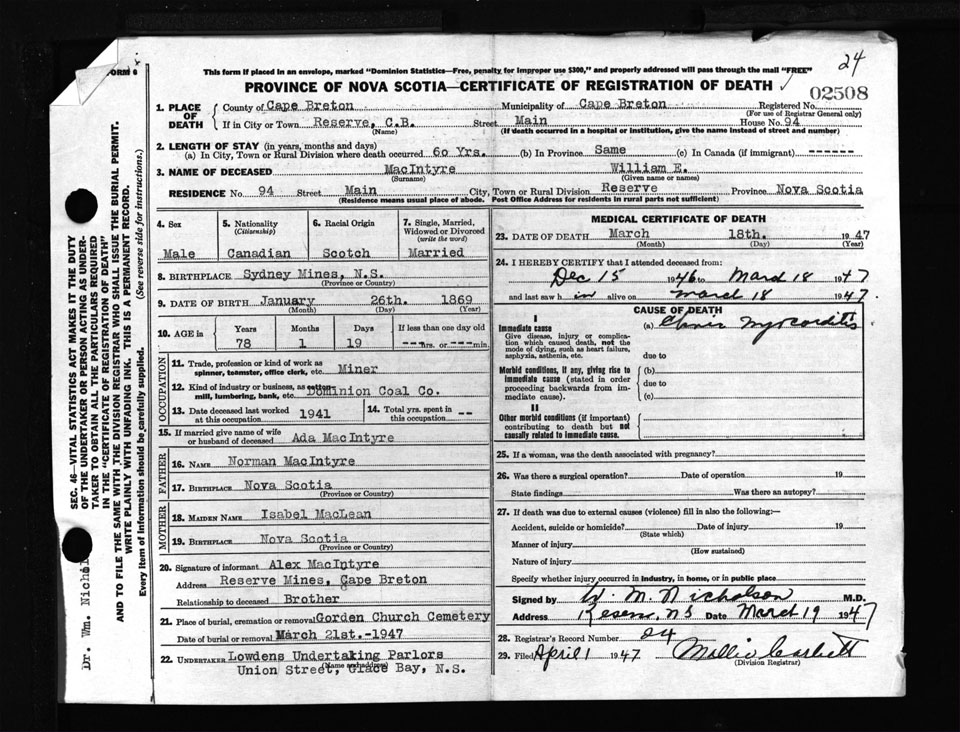 24
FORM 6
This form if placed in an envelope, marked "Dominion Statistics—Free, penalty for improper use $300," and properly addressed will pass through the mail "FREE"
PROVINCE OF NOVA SCOTIA—CERTIFICATE OF REGISTRATION OF DEATH
02508
1. PLACE OF DEATH
County of Cape Breton Municipality of Cape Breton Registered No.
(For use of Registrar General only)
If in City or Town Reserve, C.B. Street Main House No. 94
(Name) (If death occurred in a hospital or institution, give the name instead of street and number)
2. LENGTH OF STAY (in years, months and days)
(a) In City, Town or Rural Division where death occurred 60 Yrs. (b) In Province Same (c) In Canada (if immigrant) ------
3. NAME OF DECEASED MacIntyre William E.
(Surname) (Given name or names)
RESIDENCE No. 94 Street Main City, Town or Rural Division Reserve Province Nova Scotia
(Residence means usual place of abode. Post Office Address for residents in rural parts not sufficient)
4. Sex
Male
5. Nationality
(Citizenship)
Canadian
6. Racial Origin
Scotch
7. Single, Married, Widowed or Divorced
(write the word)
Married
8. BIRTHPLACE Sydney Mines, N.S.
(Province or Country)
9. DATE OF BIRTH January 26th. 1869
(Month) (Day) (Year)
10. AGE in Years Months Days If less than one day old
78 1 19 ---hrs. or ---min.
OCCUPATION
11. Trade, profession or kind of work as spinner, teamster, office clerk, etc. Miner
12. Kind of industry or business, as cotton mill, lumbering, bank, etc. Dominion Coal Co.
13. Date deceased last worked at this occupation 1941
14. Total yrs. spent in this occupation --
15. If married give name of wife or husband of deceased Ada MacIntyre
FATHER
16. NAME Norman MacIntyre
17. BIRTHPLACE Nova Scotia
(Province or Country)
MOTHER
18. MAIDEN NAME Isabel MacLean
19. BIRTHPLACE Nova Scotia
(Province or Country)
20. Signature of informant Alex MacIntyre
Address Reserve Mines, Cape Breton
Relationship to deceased Brother
21. Place of burial, cremation or removal Gorden Church Cemetery
Date of burial or removal March 21st.-1947
22. UNDERTAKER Lowdens Undertaking Parlors
(Name and address)
Union Street, Glace Bay, N.S.
MEDICAL CERTIFICATE OF DEATH
23. DATE OF DEATH March 18th. 1947
(Month) (Day) (Year)
24. I HEREBY CERTIFY that I attended deceased from:
Dec 15 1946 to March 18 1947
and last saw h im alive on March 18 1947.
CAUSE OF DEATH
I
Immediate cause
Give disease, injury or complication which caused death, not the mode of dying, such as heart failure, asphyxia, asthenia, etc.
(a) Myocarditis
due to
Morbid conditions, if any, giving rise to immediate cause (stated in order proceeding backwards from immediate cause).
(b)
due to
(c)
II
Other morbid conditions (if important) contributing to death but not causally related to immediate cause.
25. If a woman, was the death associated with pregnancy?
26. Was there a surgical operation? Date of operation 19
State findings Was there an autopsy?
27. If death was due to external causes (violence) fill in also the following:—
Accident, suicide or homicide? Date of injury 19
(State which)
Manner of injury
(How sustained)
Nature of injury
Specify whether injury occurred in industry, in home, or in public place
Signed by W. M. Nicholson M.D.
Address Reserve NS Date March 19 1947
28. Registrar's Record Number 24
29. Filed April 1 1947 Mollie Corbett
(Division Registrar)
SEC. 46—VITAL STATISTICS ACT MAKES IT THE DUTY
OF THE UNDERTAKER OR PERSON ACTING AS UNDERTAKER TO OBTAIN ALL THE PARTICULARS REQUIRED
IN THE "CERTIFICATE OF REGISTRATION OF DEATH"
AND TO FILE THE SAME WITH THE DIVISION REGISTRAR WHO SHALL ISSUE THE BURIAL PERMIT.
WRITE PLAINLY WITH UNFADING INK. THIS IS A PERMANENT RECORD.
Every item of information should be carefully supplied. (See reverse side for instructions.)
Dr. Wm. Nichol